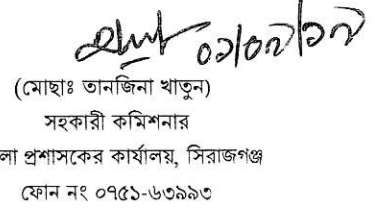 ০১/০৮/১৮
(মোছাঃ তানজিনা খাতুন)
সহকারী কমিশনার
লা প্রশাসকের কার্যালয়, সিরাজগঞ্জ
ফোন নং ০৭৫১-৬৩৯৯৩